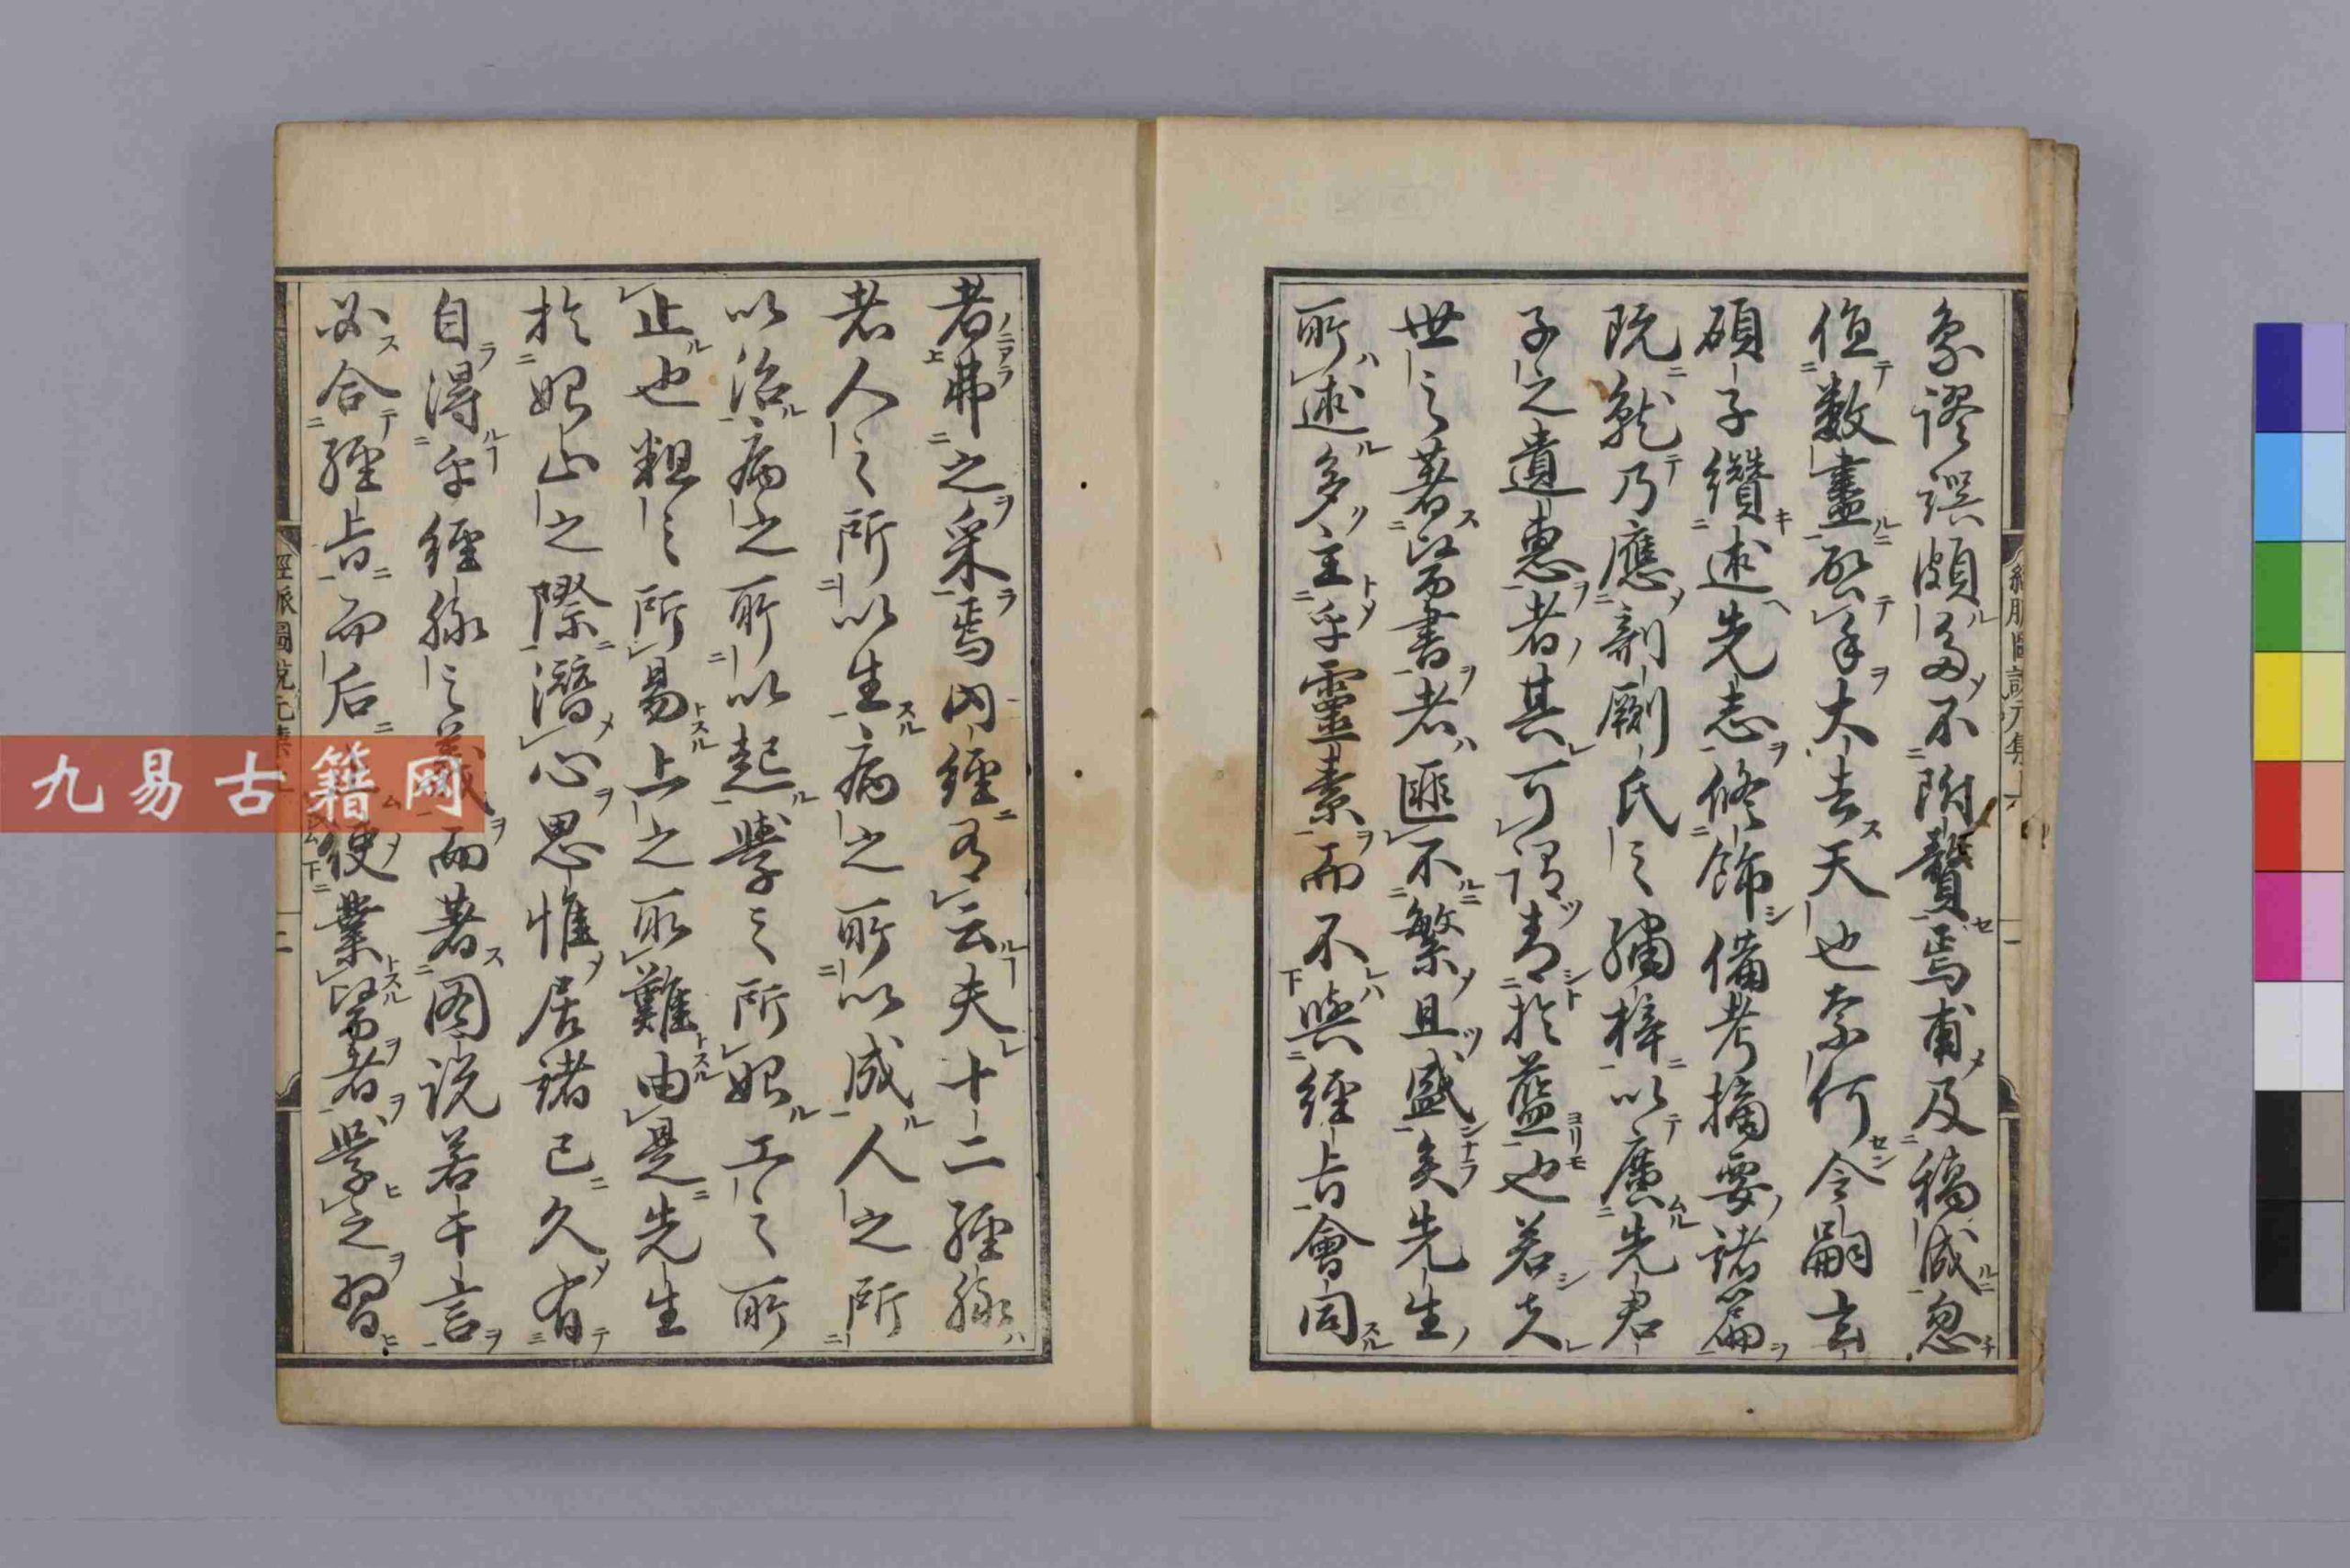 象謬誤頗多不附贅焉甫及稿成忽
值數盡啓手大去天也奈何今嗣玄
碩子纘述先志修飾備考摘要諸篇
既就乃應剞劂氏之繡梓以廣先君
子之遺惠者其可謂青於藍也若夫
世之著醫書者匪不繁且盛矣先生
所述多主乎靈素而不與經旨會同
者弗之采焉内經有云夫十二經脉
者人之所以生病之所以成人之所
以治病之所以起學之所始工之所
止也粗之所易上之所難由是先生
於始止之際潛心思惟居諸已久有
自得乎經脉之義而著圖説若干言
必合經旨而后使業醫者學之習
經脈圖説元集
九易古籍网